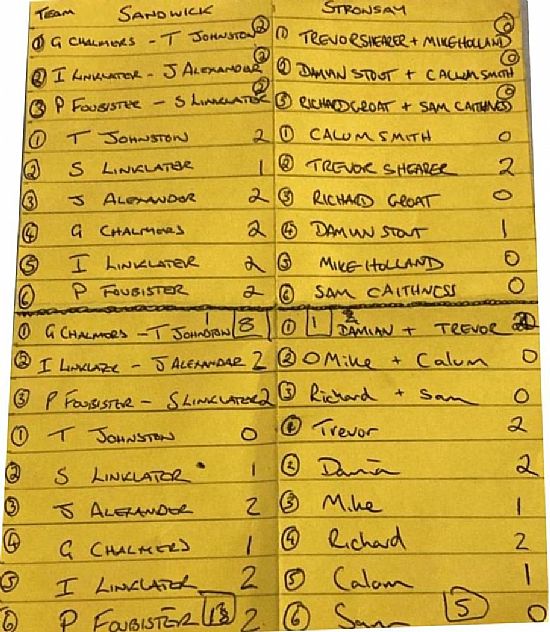 TEAM SANDWICK STRONSAY
① G CHALMERS - T JOHNSTON 2 ① TREVOR SHEARER + MIKE HOLLAND 0
② I LINKLATER - J ALEXANDER 2 ② DAMIAN STOUT + CALUM SMITH 0
③ P FOUBISTER - S LINKLATER 2 ③ RICHARD GROAT + SAM CAITHNESS 0
① T JOHNSTON 2 ① CALUM SMITH 0
② S LINKLATER 1 ② TREVOR SHEARER 2
③ J ALEXANDER 2 ③ RICHARD GROAT 0
④ G CHALMERS 2 ④ DAMIAN STOUT 1
⑤ I LINKLATER 2 ⑤ MIKE HOLLAND 0
⑥ P FOUBISTER 2 ⑥ SAM CAITHNESS 0
① G CHALMERS - T JOHNSTON 1 8 ① 1 DAMIAN + TREVOR 2
② I LINKLATER - J ALEXANDER 2 ② 0 Mike + Calum 0
③ P FOUBISTER - S LINKLATER 2 ③ Richard + Sam 0
① T JOHNSTON 0 ① Trevor 2
② S LINKLATER 1 ② Damian 2
③ J ALEXANDER 2 ③ Mike 1
④ G CHALMERS 1 ④ Richard 2
⑤ I LINKLATER 2 ⑤ Calum 1
⑥ P FOUBISTER 13 2 ⑥ Sam 5 0